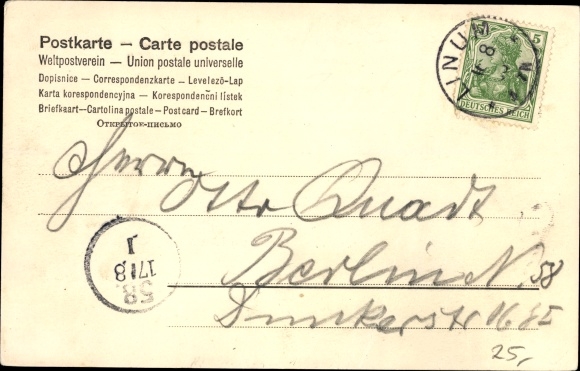 Postkarte – Carte postale
Weltpostverein – Union postale universelle
Dopisnice – Correspondenzkarte – Levelező-Lap
Karta korespondencyjna – Korespondenční lístek
Briefkaart – Cartolina postale – Postcard – Brefkort
Открытое-письмо
LINUM
8
5
DEUTSCHES REICH
Herrn
Otto Quadt
Berlin N. 58
Dunkerstr
58
17 8
25,